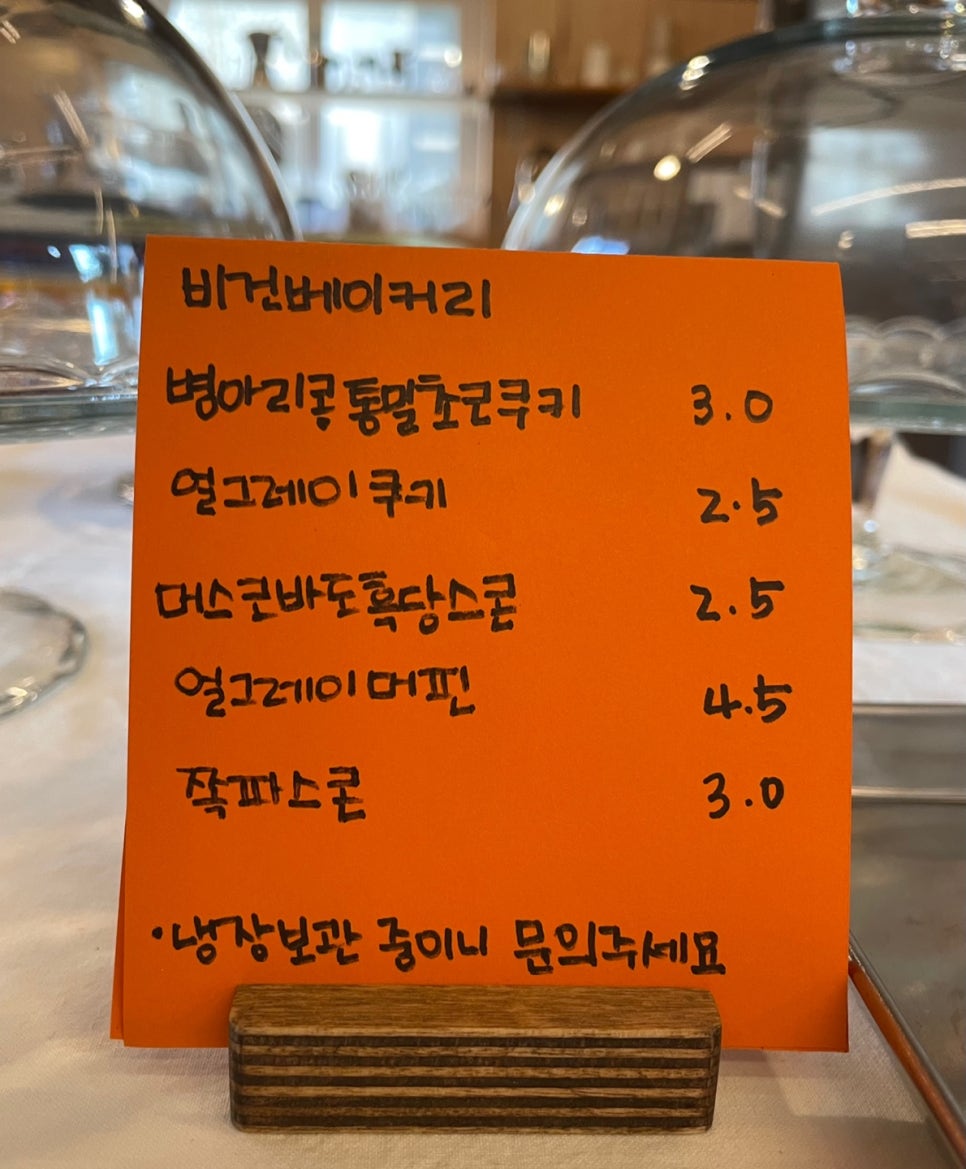 비건베이커리
병아리콩통밀초코쿠키 3.0
얼그레이쿠키 2.5
머스코바도흑당스콘 2.5
얼그레이머핀 4.5
쪽파스콘 3.0
·냉장보관 중이니 문의주세요